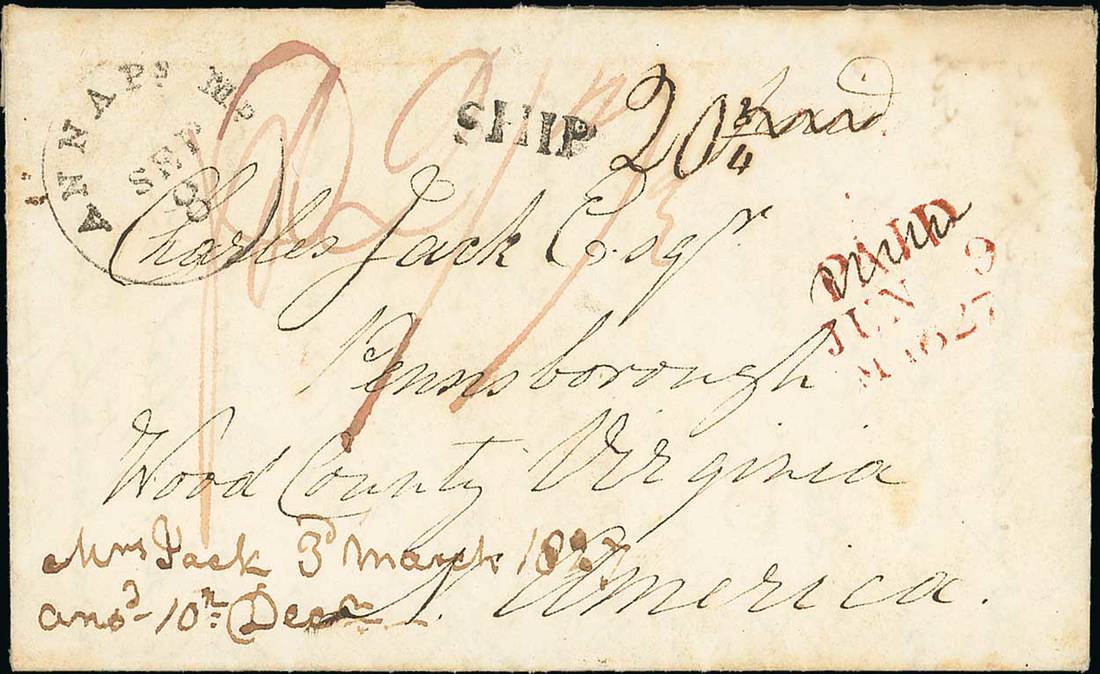 ANNAPs MD
SEP
8
SHIP
20 3/4
PAID
JUN 9
1827
Charles Jack Esqr
Pennsborough
Wood County Virginia
N. America.
Mrs Jack 3d March 1827
ansd 10th Decr